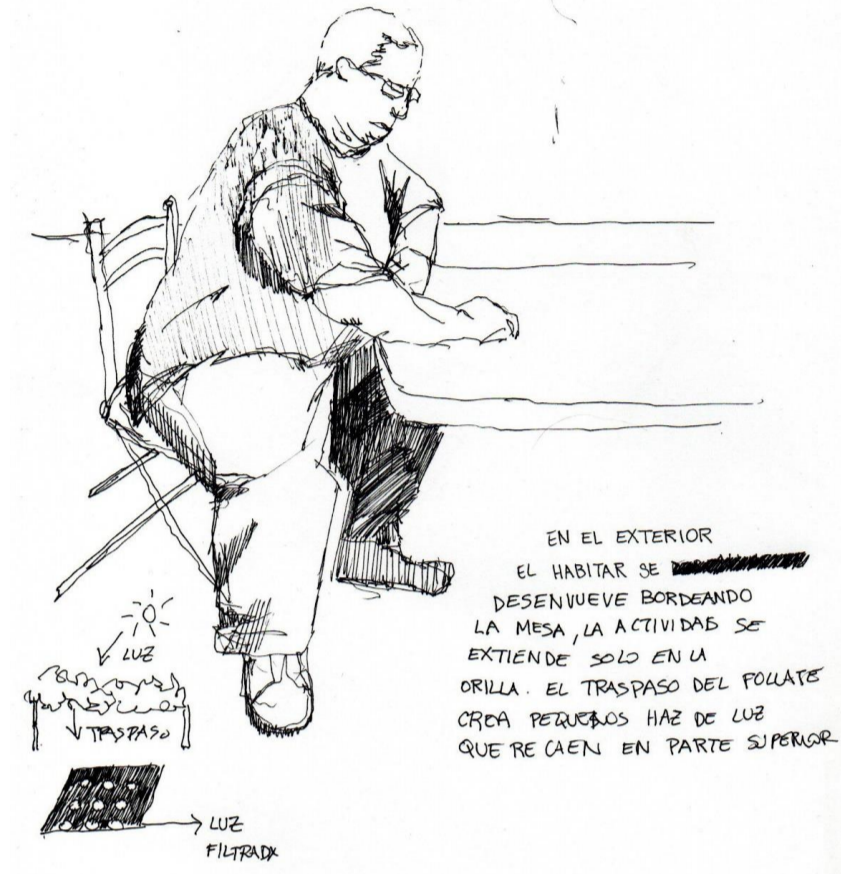 EN EL EXTERIOR
EL HABITAR SE
DESENVUEVE BORDEANDO
LA MESA, LA ACTIVIDAD SE
EXTIENDE SOLO EN LA
ORILLA. EL TRASPASO DEL FOLLATE
CREA PEQUEÑOS HAZ DE LUZ
QUE RECAEN EN PARTE SUPERIOR
LUZ
TRASPASO
LUZ
FILTRADA